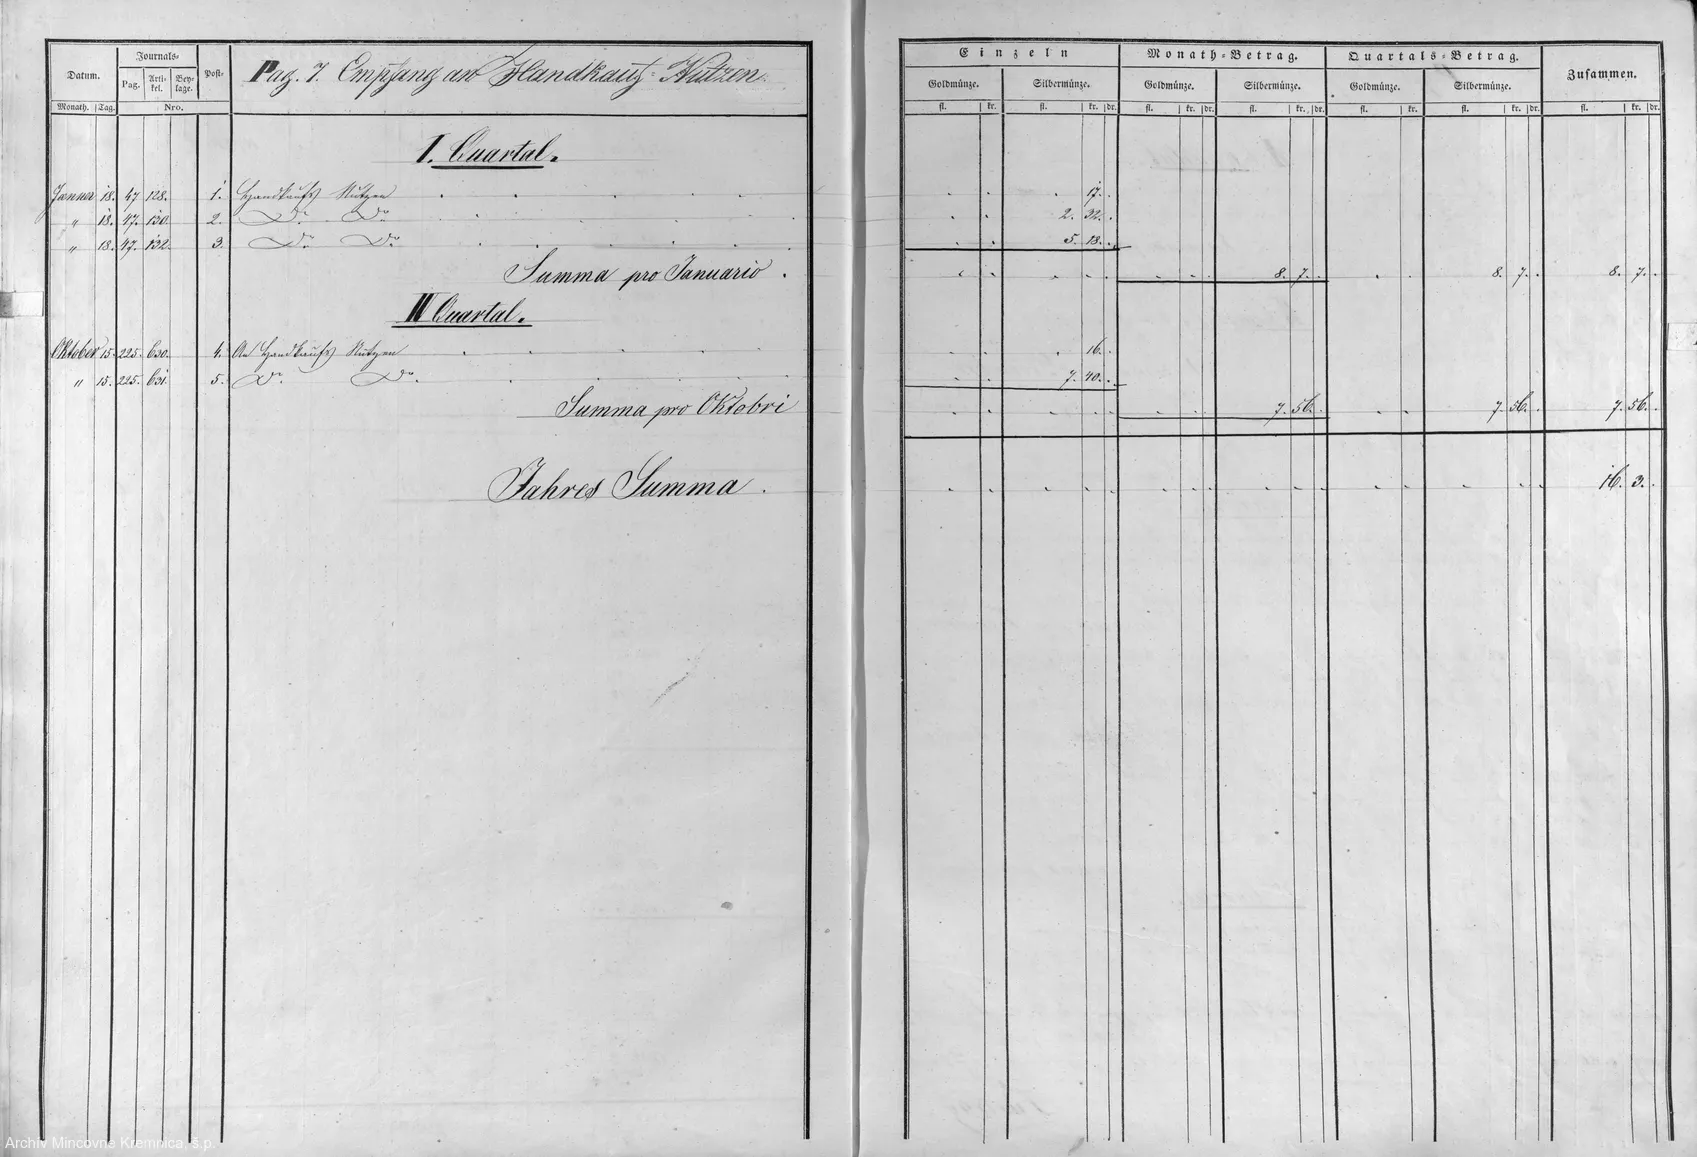 Datum. Journals- Post- Pag. 7. Empfang an Handkaufs-Nutzen.
Pag. Arti-kel. Bey-lage.
Monath. Tag. Nro.
Einzeln Monath-Betrag. Quartals-Betrag. Zusammen.
Goldmünze. Silbermünze. Goldmünze. Silbermünze. Goldmünze. Silbermünze.
fl. kr. fl. kr. dr. fl. kr. dr. fl. kr. dr. fl. kr. fl. kr. dr. fl. kr. dr.
I. Quartal.
Jänner 18. 47 128. 1. Handkaufs Nutzen . 17.
" 18. 47. 130. 2. Do Do 2. 32.
" 18. 47. 132. 3. Do Do 5. 18.
Summa pro Januario . 8. 7. 8. 7. 8. 7.
Quartal.
Oktober 15. 225. 630. 4. An Handkaufs Nutzen . 16.
" 15. 225. 631. 5. Do Do 7. 40.
Summa pro Oktobri 7. 56. 7. 56. 7. 56.
Jahres Summa . 16. 3.
Archív Mincovne Kremnica, š.p.